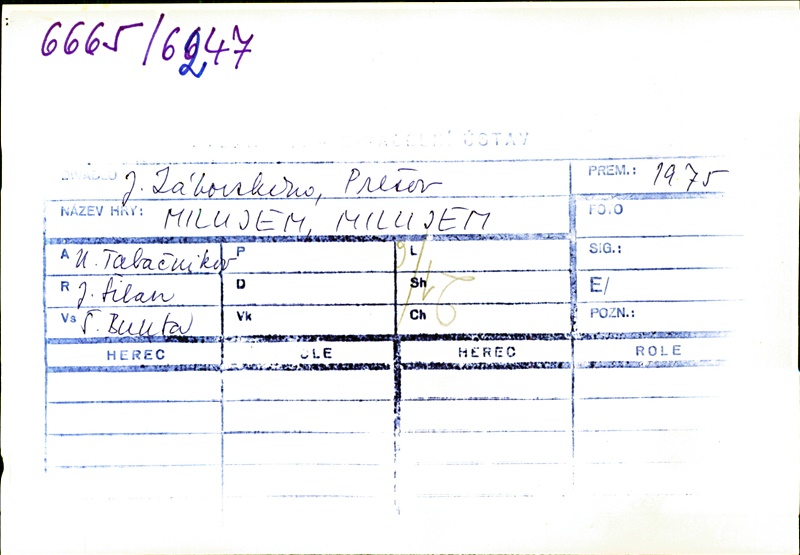 6665/6247
ÚSTAV
DIVADLO J. Záborského, Prešov PREM.: 1975
NÁZEV HRY: MILUJEM, MILUJEM FOTO
A N. Tabačnikov P L SIG.:
R J. Šilan D Sh E/
Vs Š. Bunta Vk Ch POZN.:
HEREC ROLE HEREC ROLE